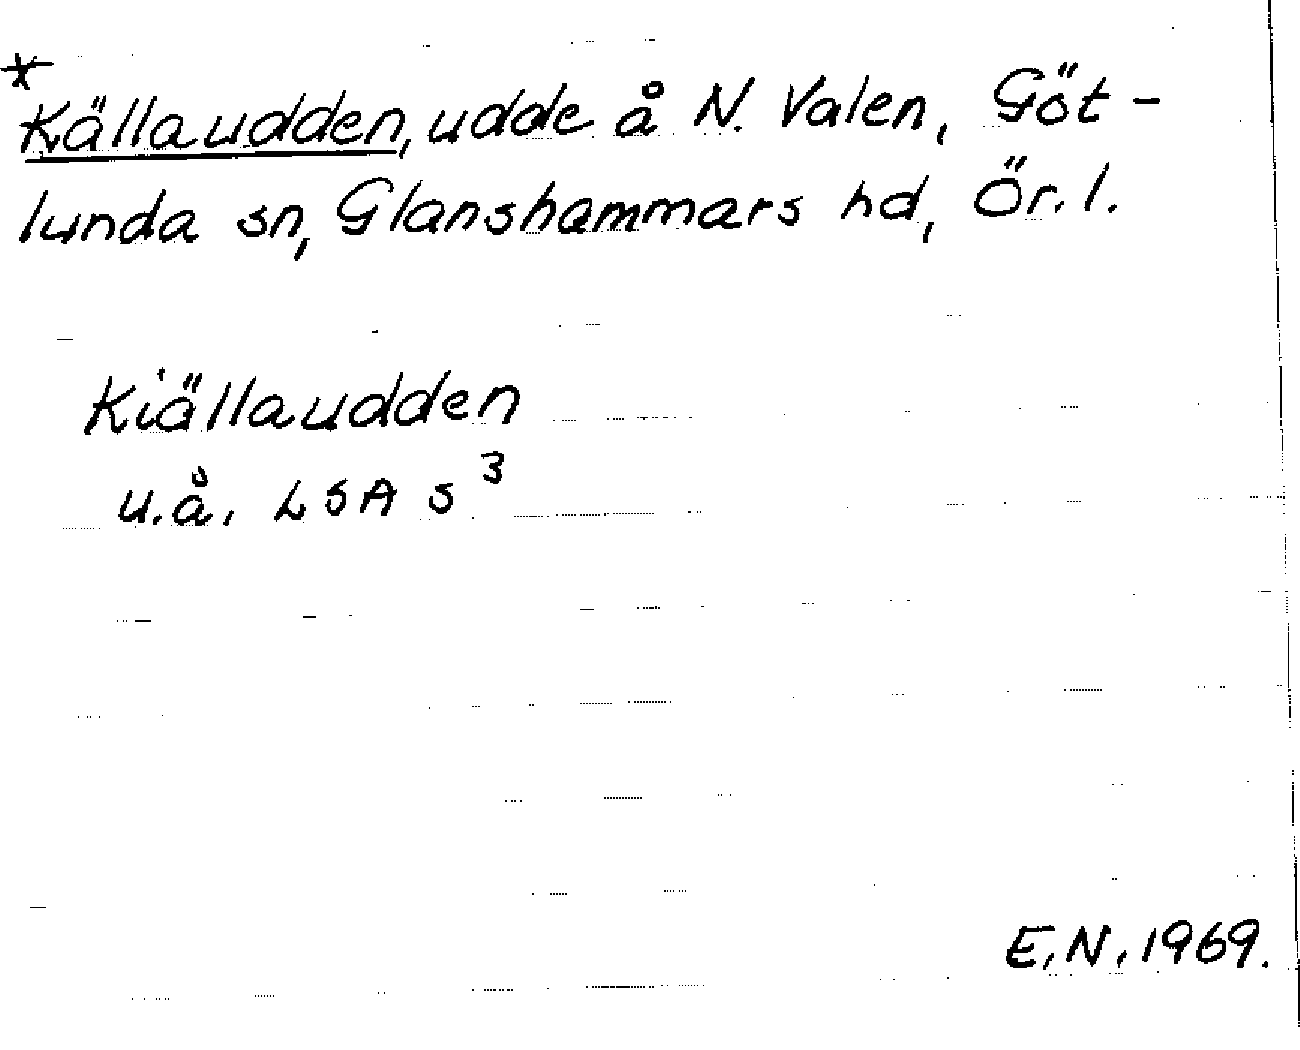 *
Källaudden, udde å N. Valen, Göt-
lunda sn, Glanshammars hd, Ör. l.
Kiällaudden
u.å. LSA s³
E.N. 1969.